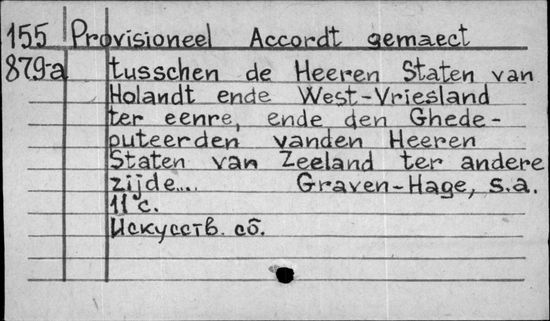 155 Provisioneel Accordt gemaect
879-a tusschen de Heeren Staten van
Holandt ende West-Vriesland
ter eenre, ende den Ghede-
puteerden vanden Heeren
Staten van Zeeland ter andere
zijde... Graven-Hage, s.a.
11 с.
Искусств. сб.